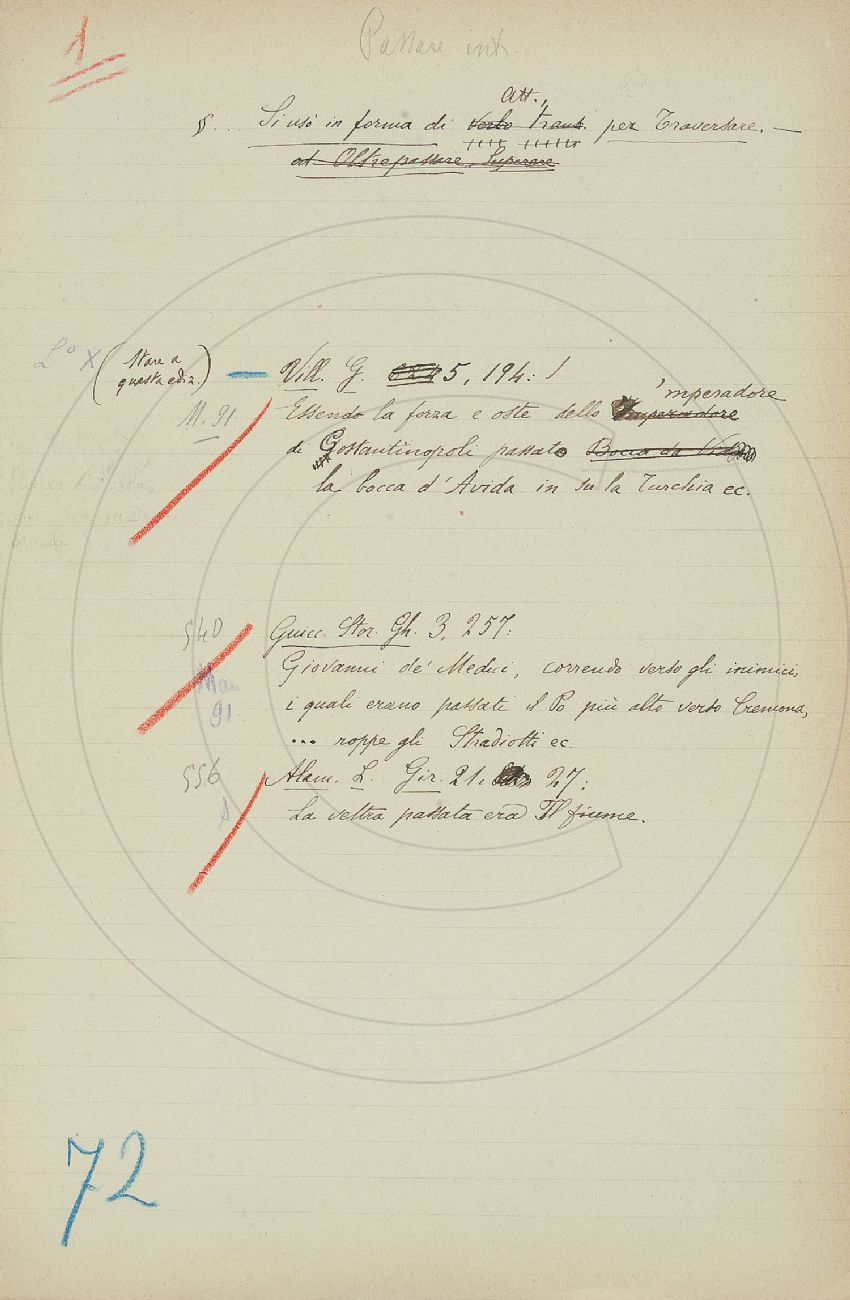 1
Passare intr.
att.,
§... Si usò in forma di verbo trans. per Traversare. —
ed Oltrepassare, Superare
L° X (Stare a
questa ediz.) — Vill. G. 5, 194:
'mperadore
M. 91 Essendo la forza e oste dello Imperadore
di Gostantinopoli passato Bocca da Vid
la bocca d'Avida in su la Turchia ec.
540 Guicc. Stor. Gh. 3, 257:
Giovanni de' Medici, correndo verso gli inimici,
Man
91. i quali erano passati il Po più alto verso Cremona,
... roppe gli Stradiotti ec.
556 Alam. L. Gir. 21. 27:
La veltra passata era Il fiume.
72